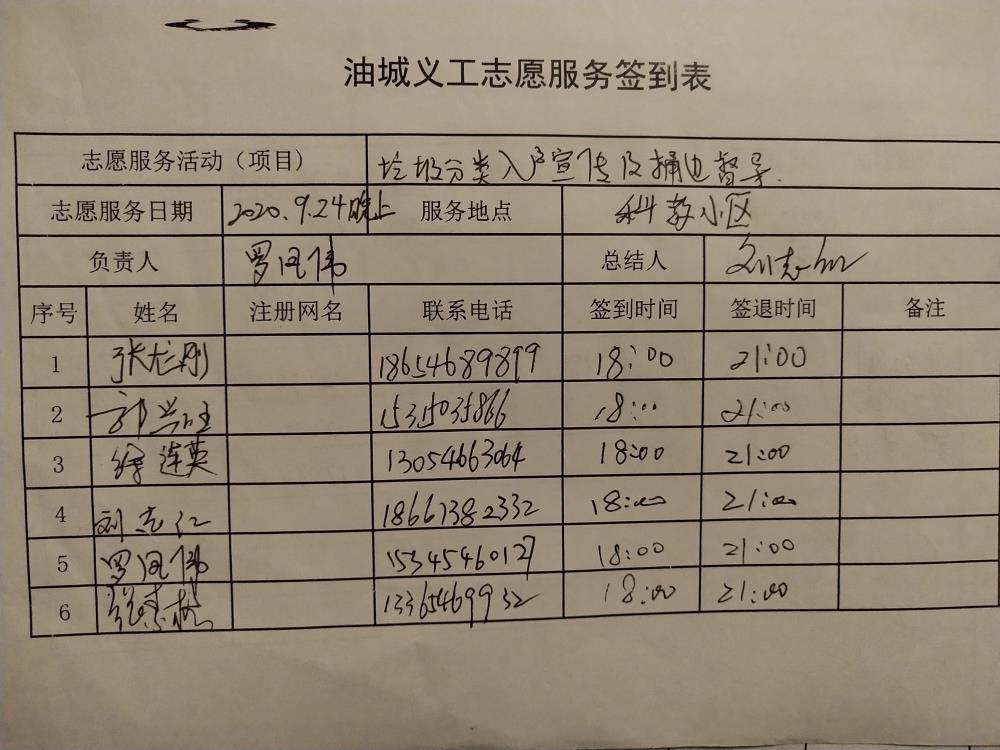 油城义工志愿服务签到表
志愿服务活动（项目） 垃圾分类入户宣传及桶边督导.
志愿服务日期 2020.9.24晚上 服务地点 科教小区
负责人 罗同伟 总结人 刘志仁
序号 姓名 注册网名 联系电话 签到时间 签退时间 备注
1 张龙刚 18654689899 18:00 21:00
2 15315035866 18:00 21:00
3 徐连英 13054663064 18:00 21:00
4 刘志仁 18661382332 18:00 21:00
5 罗同伟 15345460127 18:00 21:00
6 13365469932 18:00 21:00